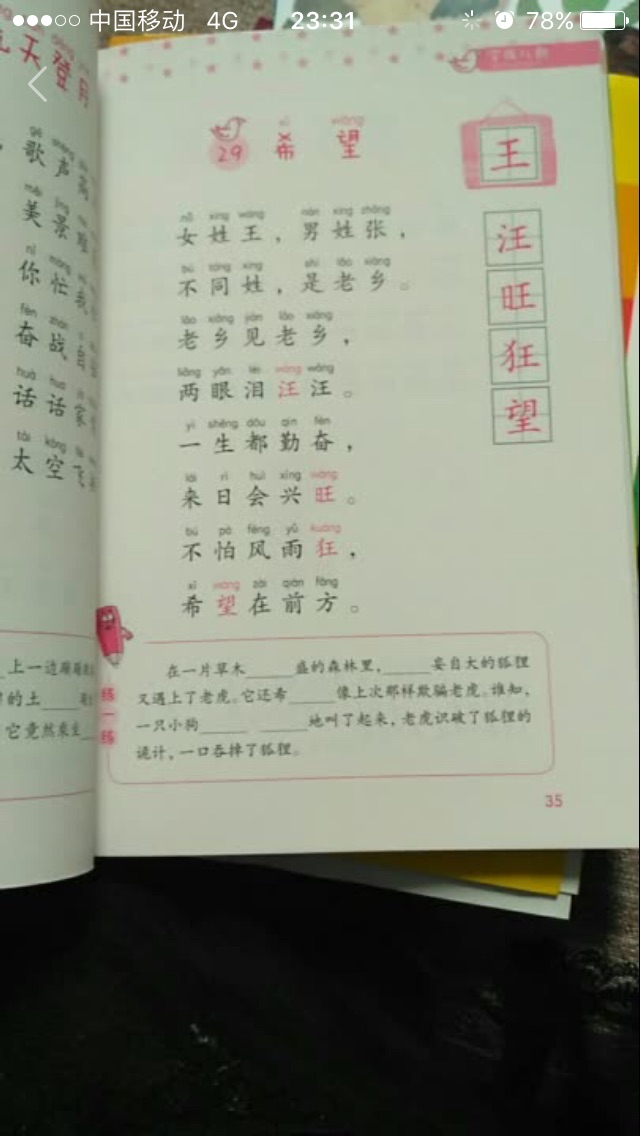 中国移动 4G 23:31 78%
天登月
歌声
美景
你忙
奋战
话话家
太空飞
上一边
的土
它竟然乘坐
29 希望
王
汪
旺
狂
望
nǚ xìng wáng nán xìng zhāng
女姓王，男姓张，
bù tóng xìng shì lǎo xiāng
不同姓，是老乡。
lǎo xiāng jiàn lǎo xiāng
老乡见老乡，
liǎng yǎn lèi wāng wāng
两眼泪汪汪。
yì shēng dōu qín fèn
一生都勤奋，
lái rì huì xīng wàng
来日会兴旺。
bú pà fēng yǔ kuáng
不怕风雨狂，
xī wàng zài qián fāng
希望在前方。
练一练
在一片草木____盛的森林里，____妄自大的狐狸
又遇上了老虎。它还希____像上次那样欺骗老虎。谁知，
一只小狗____ ____地叫了起来，老虎识破了狐狸的
诡计，一口吞掉了狐狸。
35